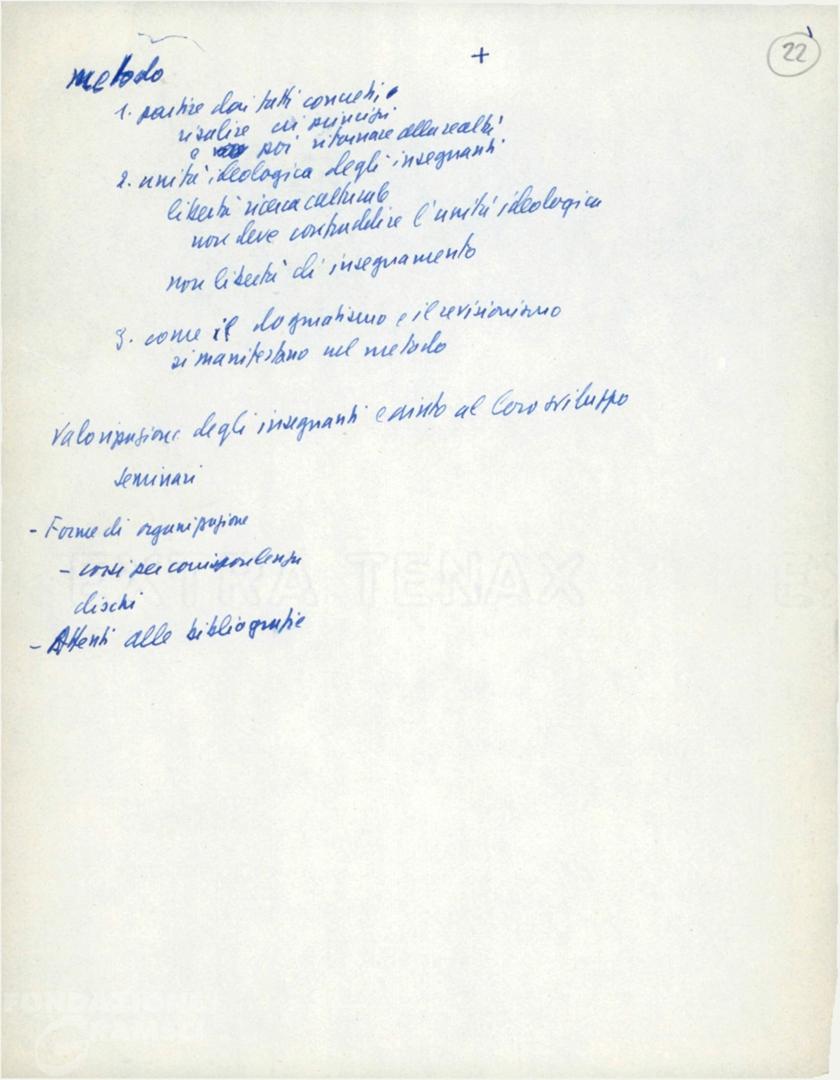 +
22
metodo
1. partire dai fatti concreti,
risalire ai principi
e poi ritornare alla realtà
2. unità ideologica degli insegnanti
libertà ricerca culturale
non deve contraddire l'unità ideologica
non libertà di insegnamento
3. come il dogmatismo e il revisionismo
si manifestano nel metodo
Valorizzazione degli insegnanti e aiuto al loro sviluppo
seminari
- Forme di organizzazione
- corsi per corrispondenza
dischi
- Attenti alle bibliografie
EXTRA TENAX
EX
FONDAZIONE
GRAMSCI